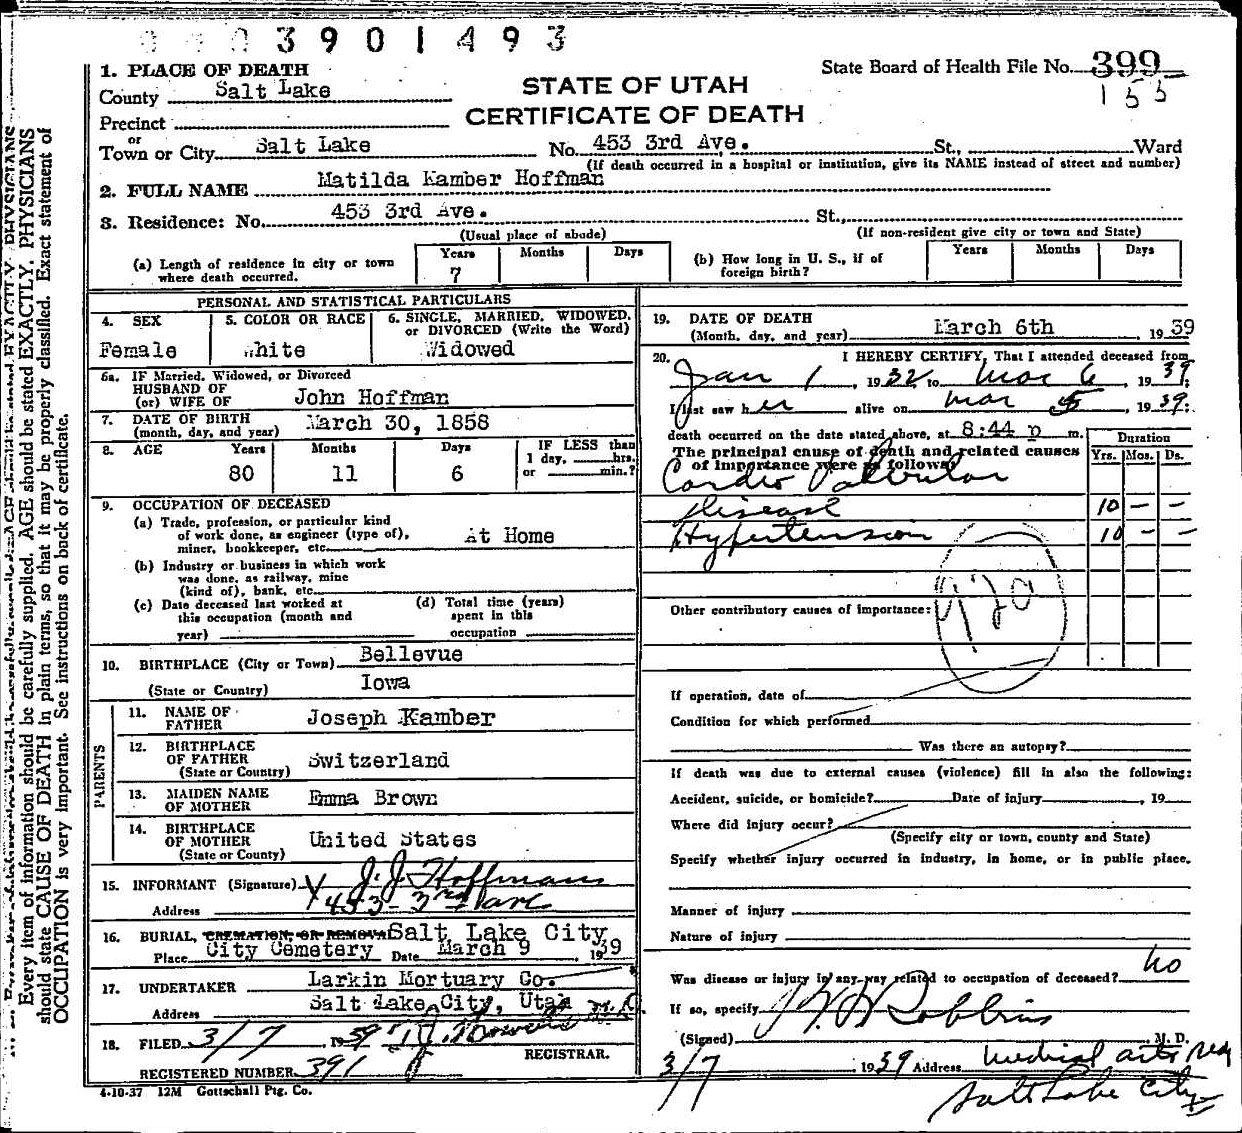 3901493
1. PLACE OF DEATH
County Salt Lake
Precinct
or
Town or City Salt Lake No. 453 3rd Ave. St., Ward
(If death occurred in a hospital or institution, give its NAME instead of street and number)
STATE OF UTAH
CERTIFICATE OF DEATH
State Board of Health File No. 399
155
2. FULL NAME Matilda Kamber Hoffman
3. Residence: No. 453 3rd Ave. St.,
(Usual place of abode) (If non-resident give city or town and State)
(a) Length of residence in city or town where death occurred. Years 7 Months Days
(b) How long in U. S., if of foreign birth? Years Months Days
PERSONAL AND STATISTICAL PARTICULARS
4. SEX Female
5. COLOR OR RACE White
6. SINGLE, MARRIED, WIDOWED, or DIVORCED (Write the Word) Widowed
6a. IF Married, Widowed, or Divorced
HUSBAND OF
(or) WIFE OF John Hoffman
7. DATE OF BIRTH
(month, day, and year) March 30, 1858
8. AGE Years 80 Months 11 Days 6 IF LESS than 1 day, hrs. or min.?
9. OCCUPATION OF DECEASED
(a) Trade, profession, or particular kind
of work done, as engineer (type of),
miner, bookkeeper, etc. At Home
(b) Industry or business in which work
was done, as railway, mine
(kind of), bank, etc.
(c) Date deceased last worked at
this occupation (month and
year)
(d) Total time (years)
spent in this
occupation
10. BIRTHPLACE (City or Town) Bellevue
(State or Country) Iowa
PARENTS
11. NAME OF FATHER Joseph Kamber
12. BIRTHPLACE OF FATHER (State or Country) Switzerland
13. MAIDEN NAME OF MOTHER Emma Brown
14. BIRTHPLACE OF MOTHER (State or County) United States
15. INFORMANT (Signature) J. J. Hoffman
Address 453 - 3rd Ave
16. BURIAL, CREMATION, OR REMOVAL Salt Lake City
Place City Cemetery Date March 9 1939
17. UNDERTAKER Larkin Mortuary Co.
Address Salt Lake City, Utah
18. FILED 3/7, 1939
REGISTRAR.
REGISTERED NUMBER 391
4-10-37 12M Gottschall Ptg. Co.
19. DATE OF DEATH
(Month, day, and year) March 6th, 1939
20. I HEREBY CERTIFY, That I attended deceased from
Jan 1, 1932 to Mar 6, 1939;
I last saw her alive on Mar 5, 1939;
death occurred on the date stated above, at 8:44 p m.
The principal cause of death and related causes
of importance were as follows:
Duration
Yrs. Mos. Ds.
Cardio Valvular
disease 10 - -
Hypertension 10 - -
92a
Other contributory causes of importance:
If operation, date of
Condition for which performed
Was there an autopsy?
If death was due to external causes (violence) fill in also the following:
Accident, suicide, or homicide? Date of injury, 19
Where did injury occur?
(Specify city or town, county and State)
Specify whether injury occurred in industry, in home, or in public place.
Manner of injury
Nature of injury
Was disease or injury in any way related to occupation of deceased? No
If so, specify
(Signed) Robbins M. D.
3/7, 1939 Address Medical Arts
Salt Lake City
Every item of information should be carefully supplied. AGE should be stated EXACTLY. PHYSICIANS
should state CAUSE OF DEATH in plain terms, so that it may be properly classified. Exact statement of
OCCUPATION is very important. See instructions on back of certificate.